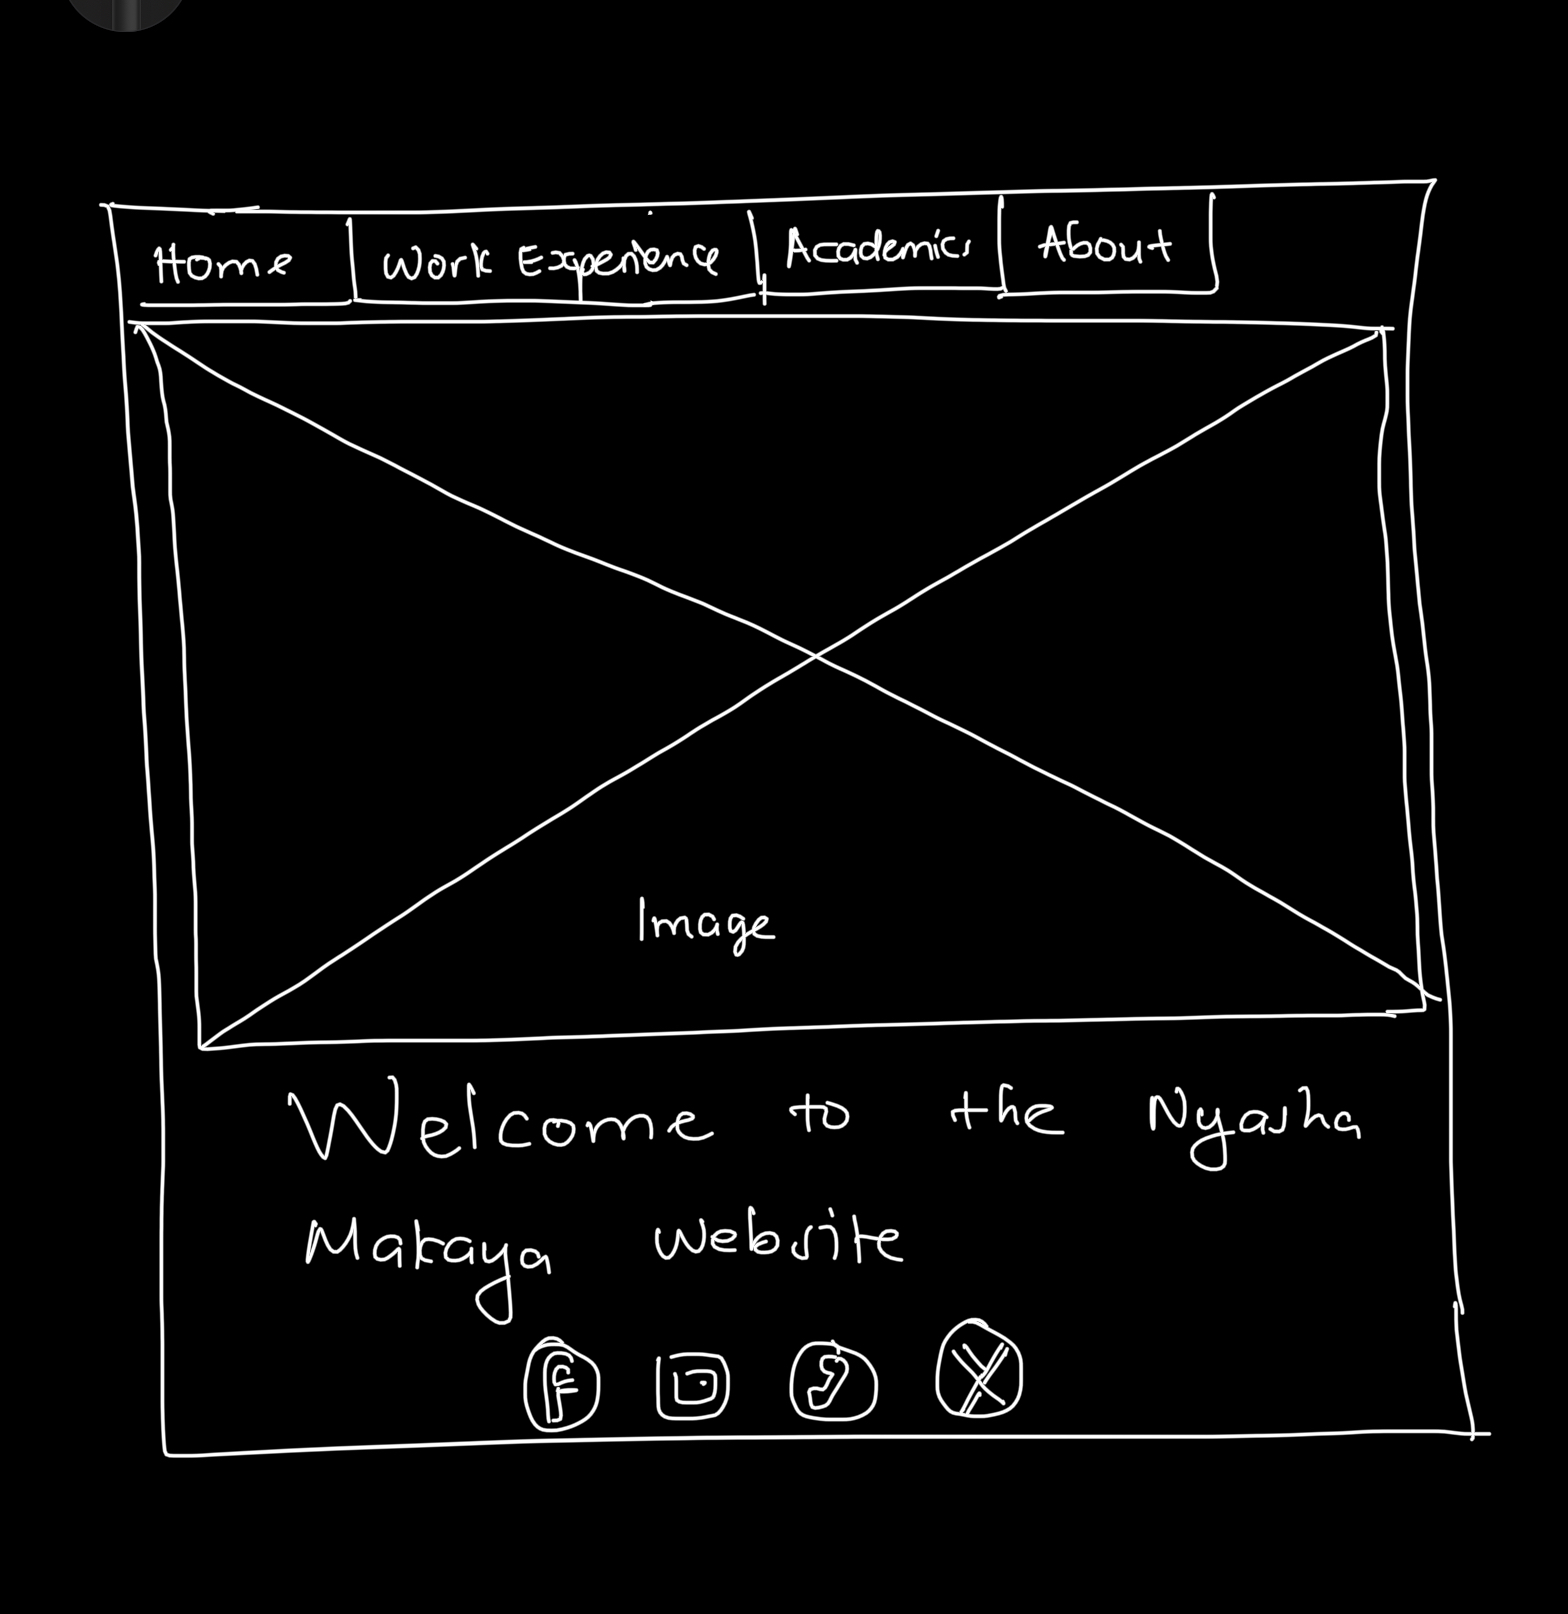 Home Work Experience Academics About
Image
Welcome to the Nyasha
Makaya website